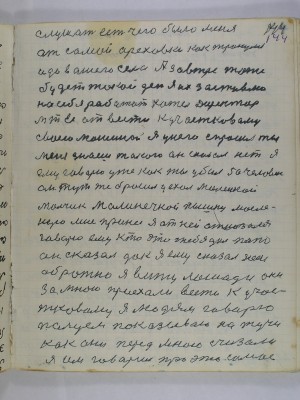 144
слушат сет чего было меня
от самой ореховки как тронули
идь вашего села Я завтре тоже
будет такой ден я их заставлю
на себя работат тоже директор
мтс. отвести к участковому
своего машиной Я у него спросил ты
меня знаеш такого он сказал нет Я
ему говорю уже как ты убил 50 человек
он тут же бросил уехал маленкой
малчик молочной пышку маслен
ную мне принес Я от ней отказался
говарю ему кто это тебя дал папо
он сказал да Я ему сказал неси
обратно Я вижу лошади они
за мною приехали вести к учас-
тковому Я людям говарю
палцем показываю на тучи
как они перед мною
Я им говарил про это самое